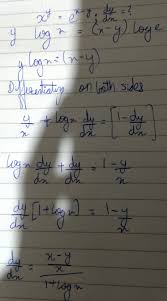 x^y = e^{x-y} ; dy/dx = ?
y log x = (x-y) log e
y log x = (x-y)
Differentiating on both sides
y/x + log x dy/dx = [1 - dy/dx]
log x dy/dx + dy/dx = 1 - y/x
dy/dx [1 + log x] = 1 - y/x
dy/dx = (x-y)/x / 1 + log x